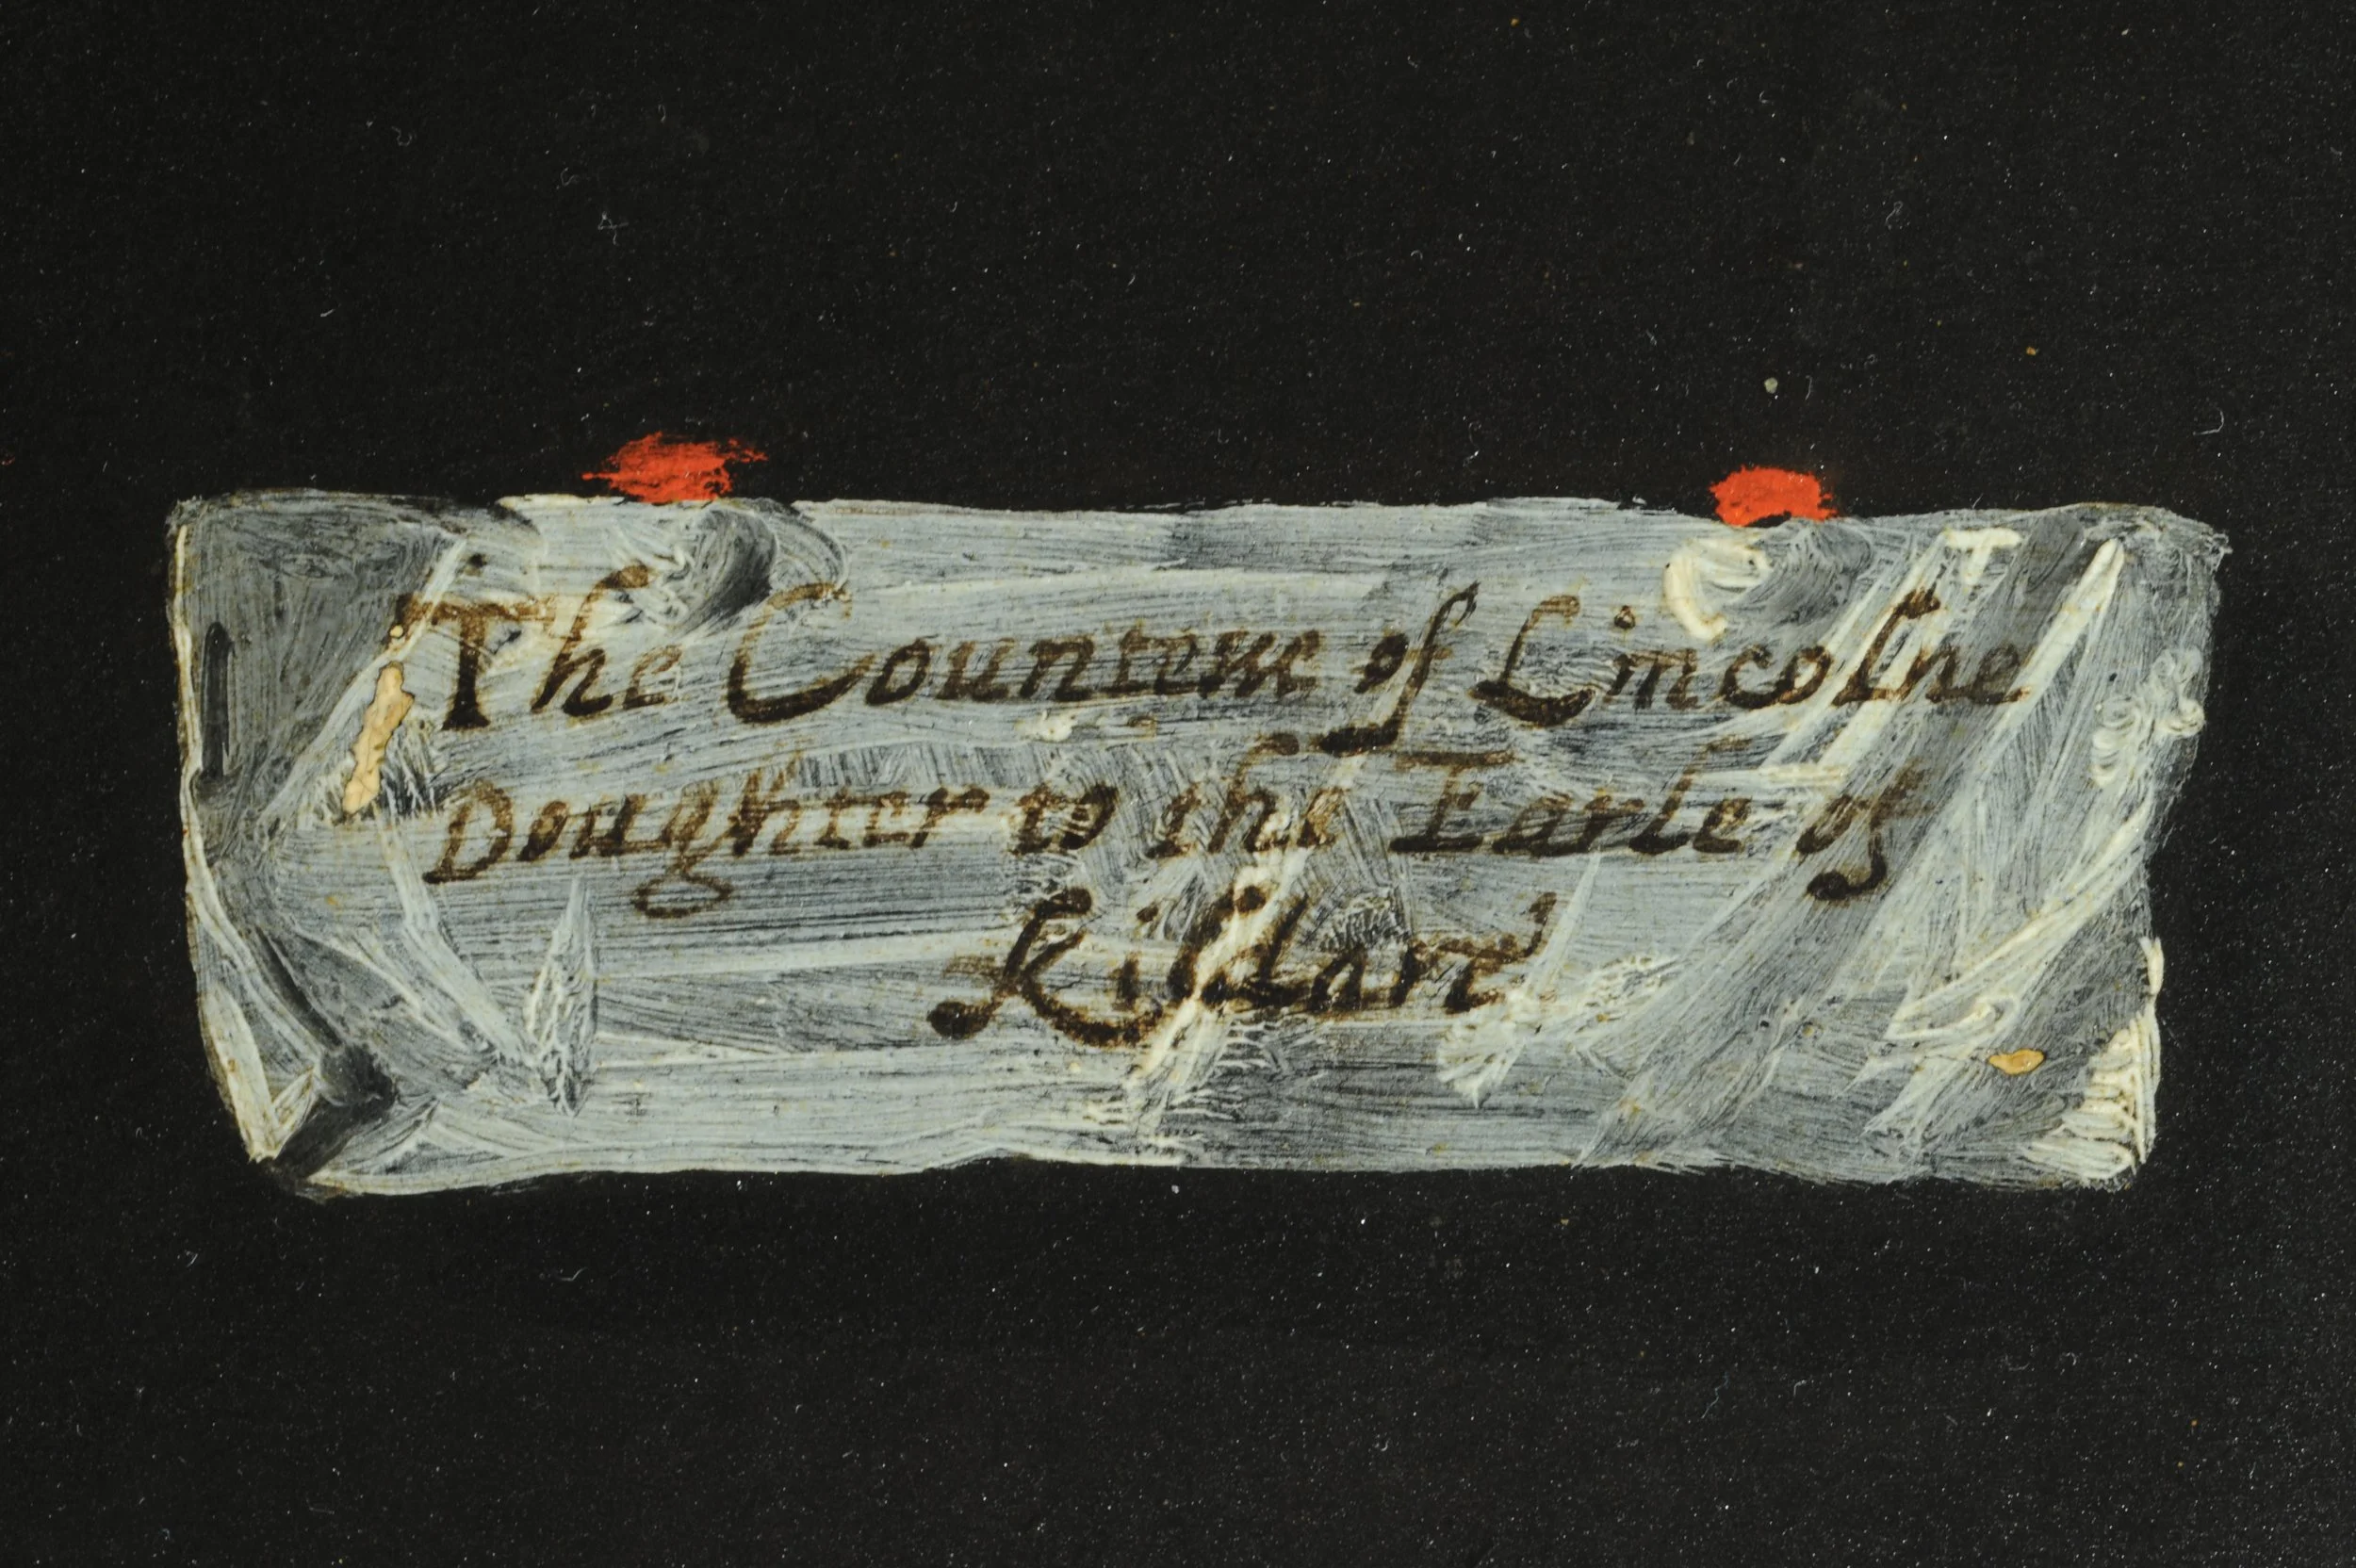 The Countesse of Lincolne
Doughter to the Earle of
Kildare